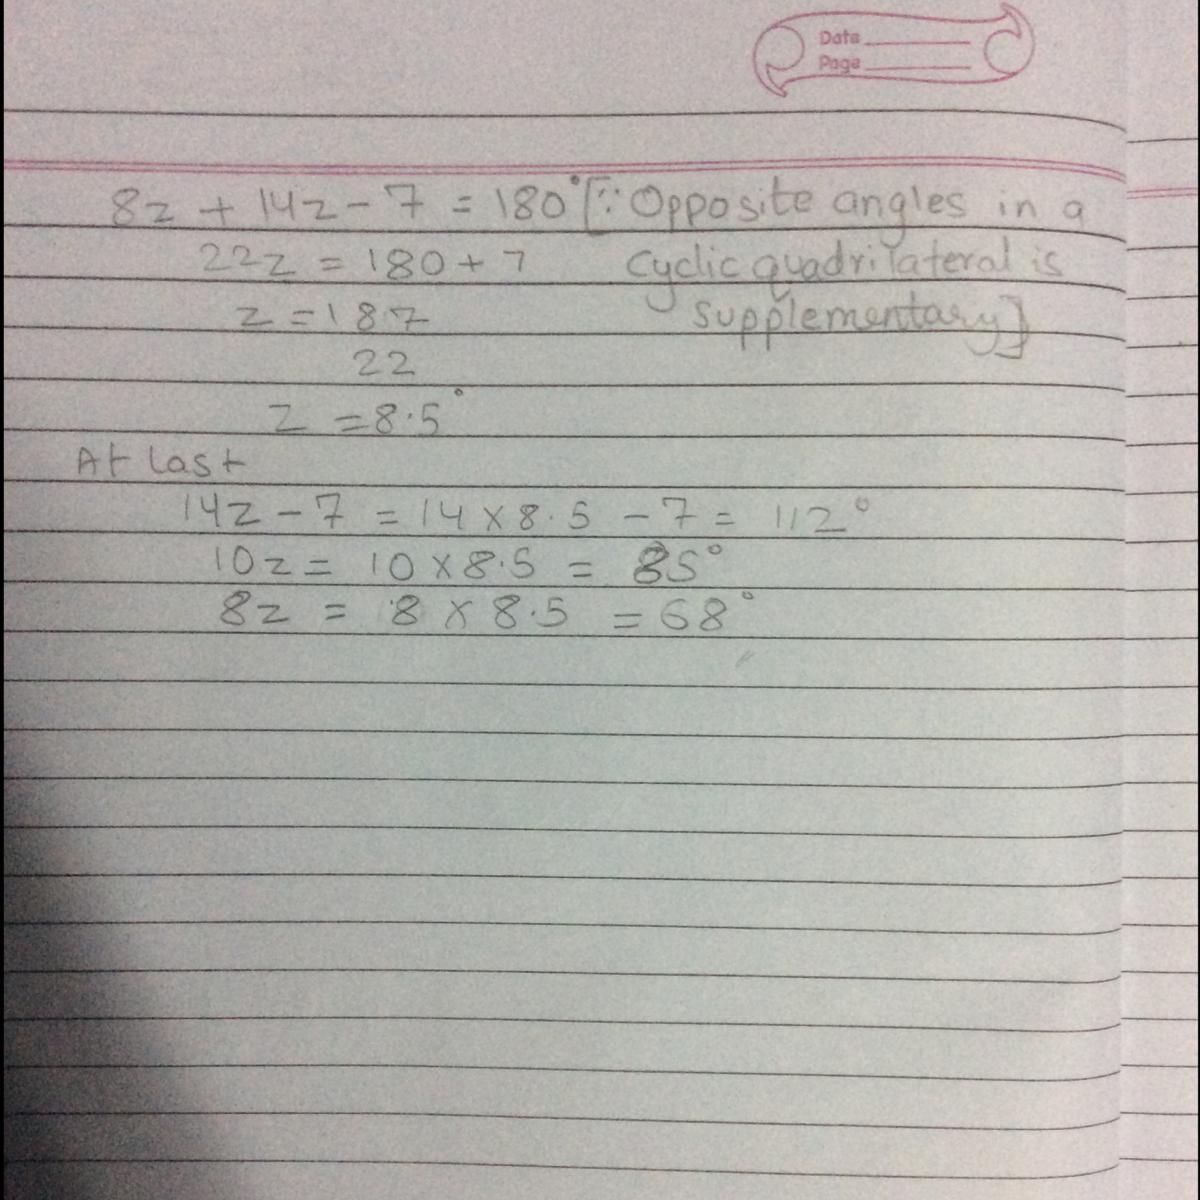 Date
Page
8z + 14z - 7 = 180° [∵ Opposite angles in a
22z = 180 + 7 cyclic quadrilateral is
z = 187 supplementary]
22
z = 8.5°
At last
14z - 7 = 14 × 8.5 - 7 = 112°
10z = 10 × 8.5 = 85°
8z = 8 × 8.5 = 68°